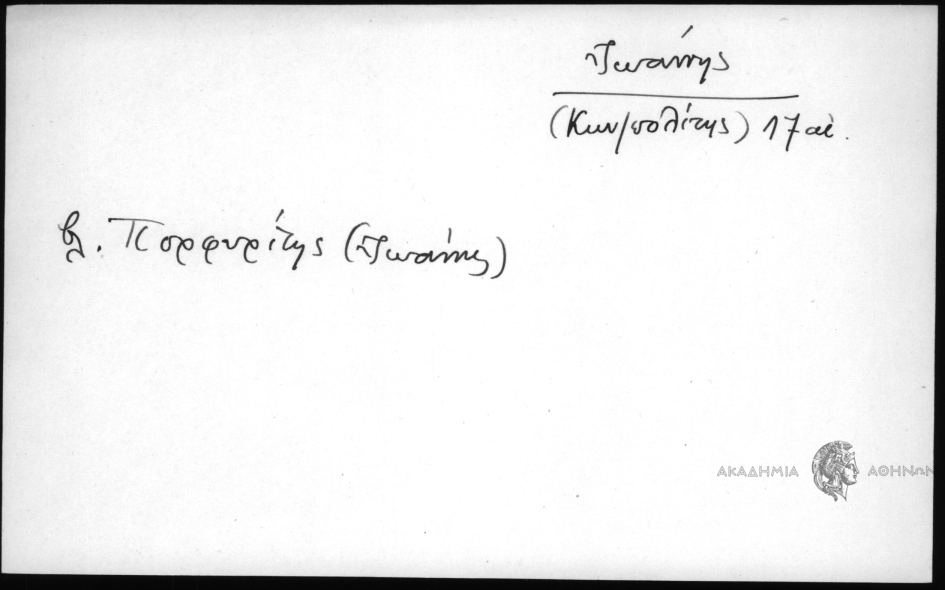 Ἰωάννης
(Κων/πολίτης) 17 αἰ.
βλ. Πορφυρίτης (Ἰωάννης)
ΑΚΑΔΗΜΙΑ ΑΘΗΝΩΝ